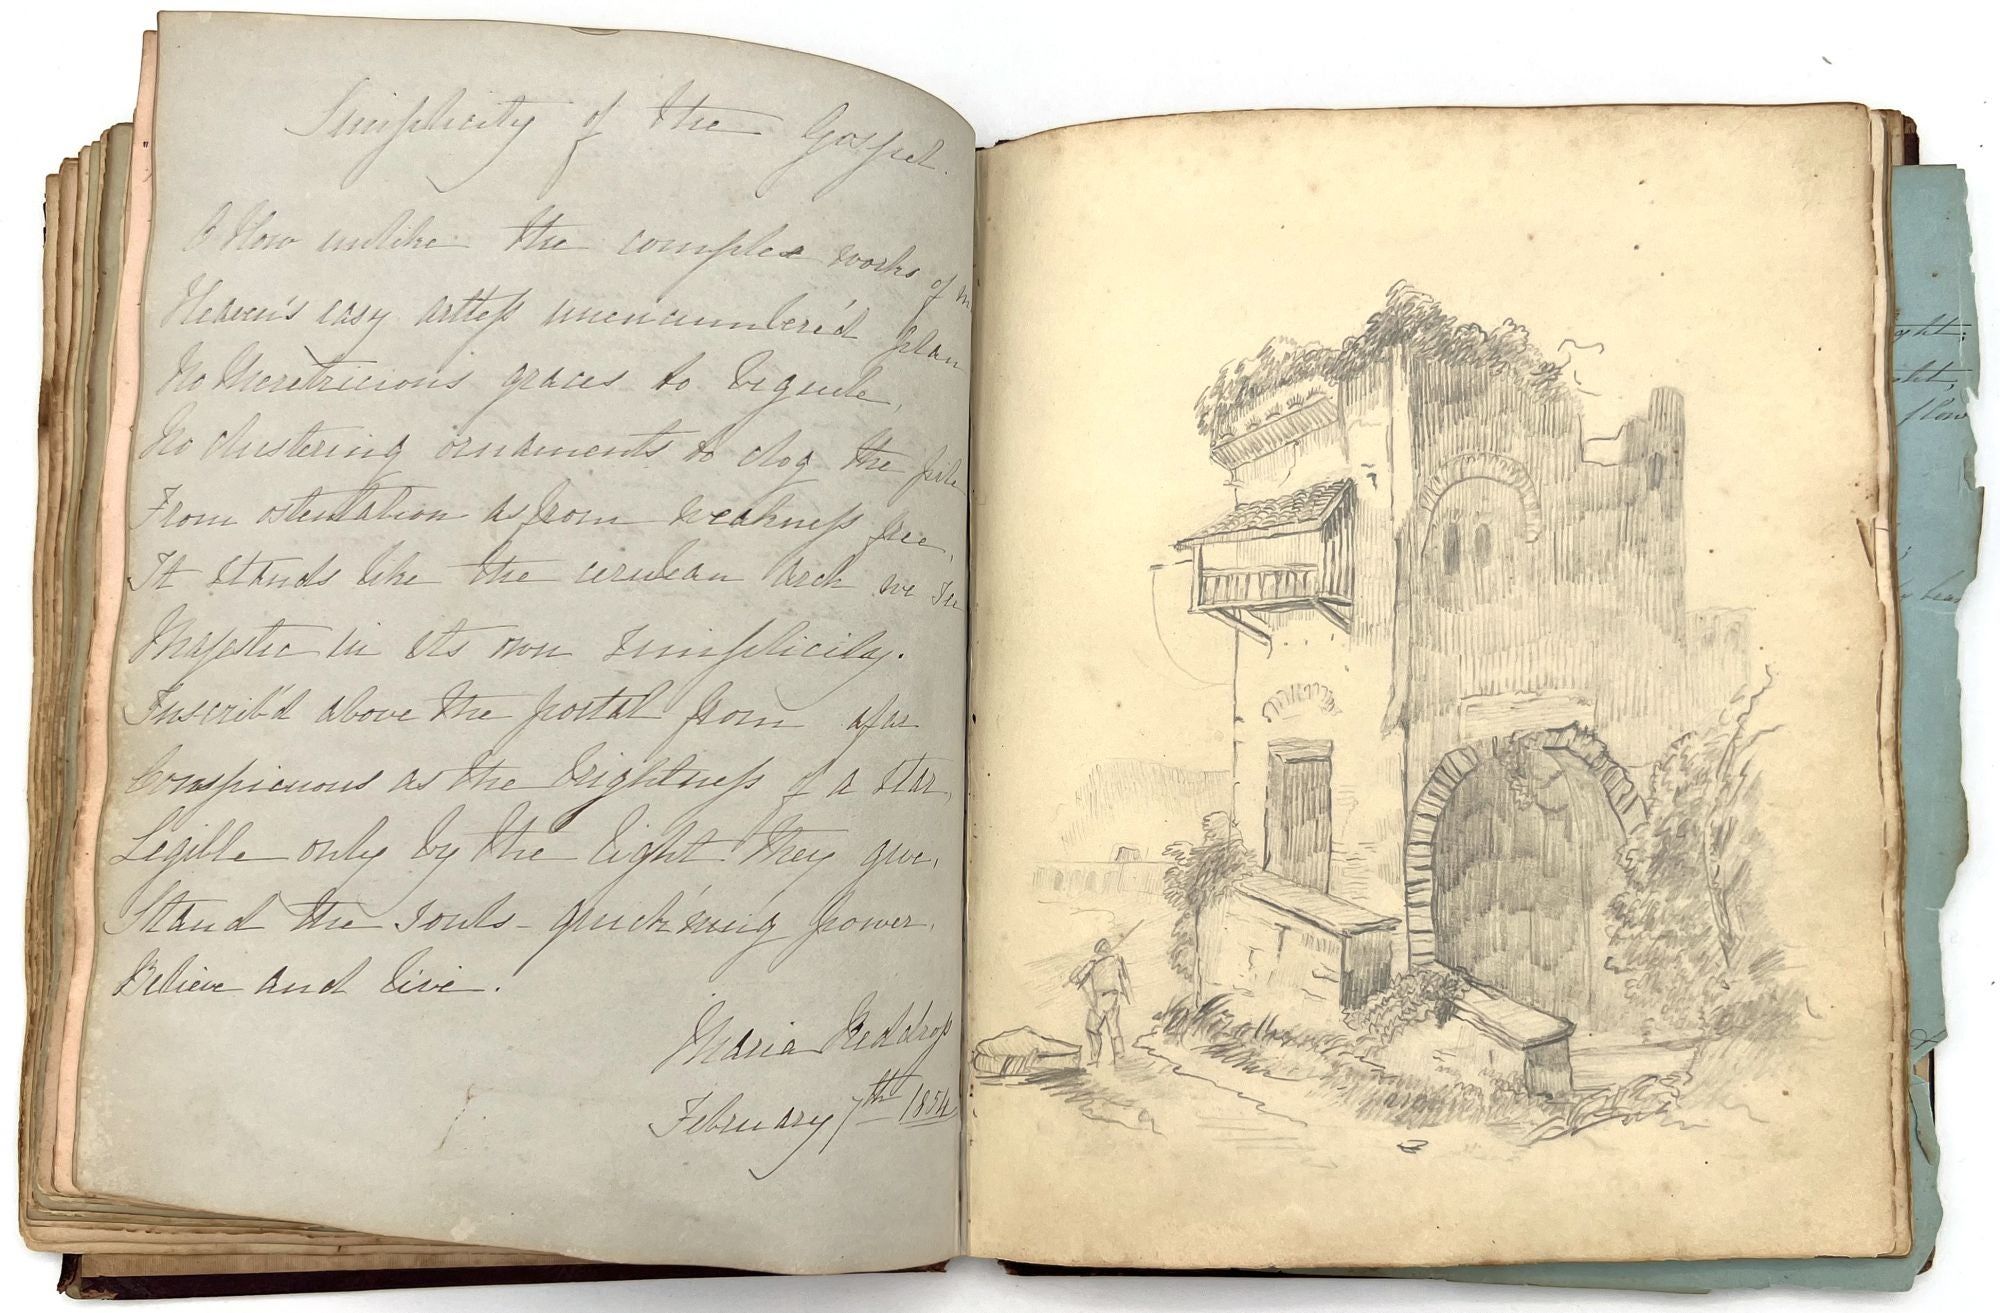 Simplicity of the Gospel.
O How unlike the complex works of m
Heaven's easy artless unencumber'd plan
No Meretricious graces to beguile,
No clustering ornaments to clog the pile
From ostentation as from weakness free,
It stands like the cerulean arch we see
Majestic in its own simplicity.
Inscrib'd above the portal from afar
Conspicuous as the brightness of a star,
Legible only by the light they give,
Stand the souls-quick'ning power,
Believe and live.
Maria Reddrop
February 7th 1854
ght,
ght,
flow